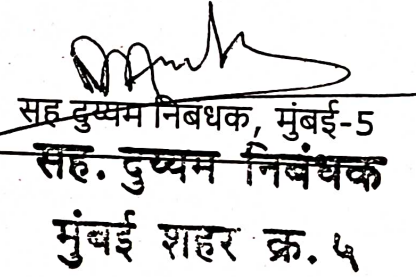 सह दुय्यम निबंधक, मुंबई-5
सह. दुय्यम निबंधक
मुंबई शहर क्र. ५